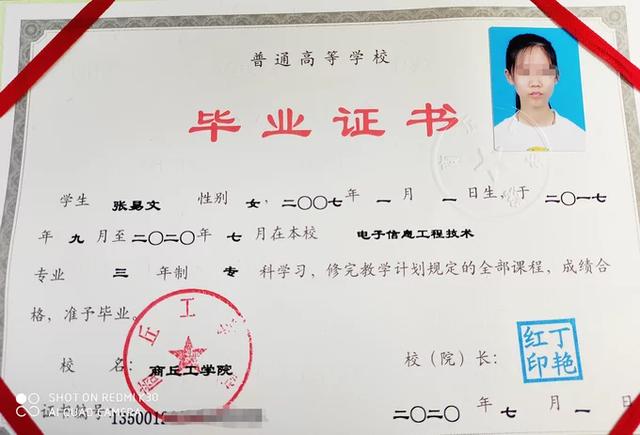 普通高等学校
毕业证书
学生 张易文 性别 女，二〇〇七年 一 月 一 日生，于二〇一七
年 九 月至二〇二〇年 七 月在本校 电子信息工程技术
专业 三 年制 专 科学习，修完教学计划规定的全部课程，成绩合
格，准予毕业。
校 名：商丘工学院
校（院）长：
丁艳红印
证书编号：135001
二〇二〇 年 七 月 一 日
SHOT ON REDMI K30
AI QUAD CAMERA